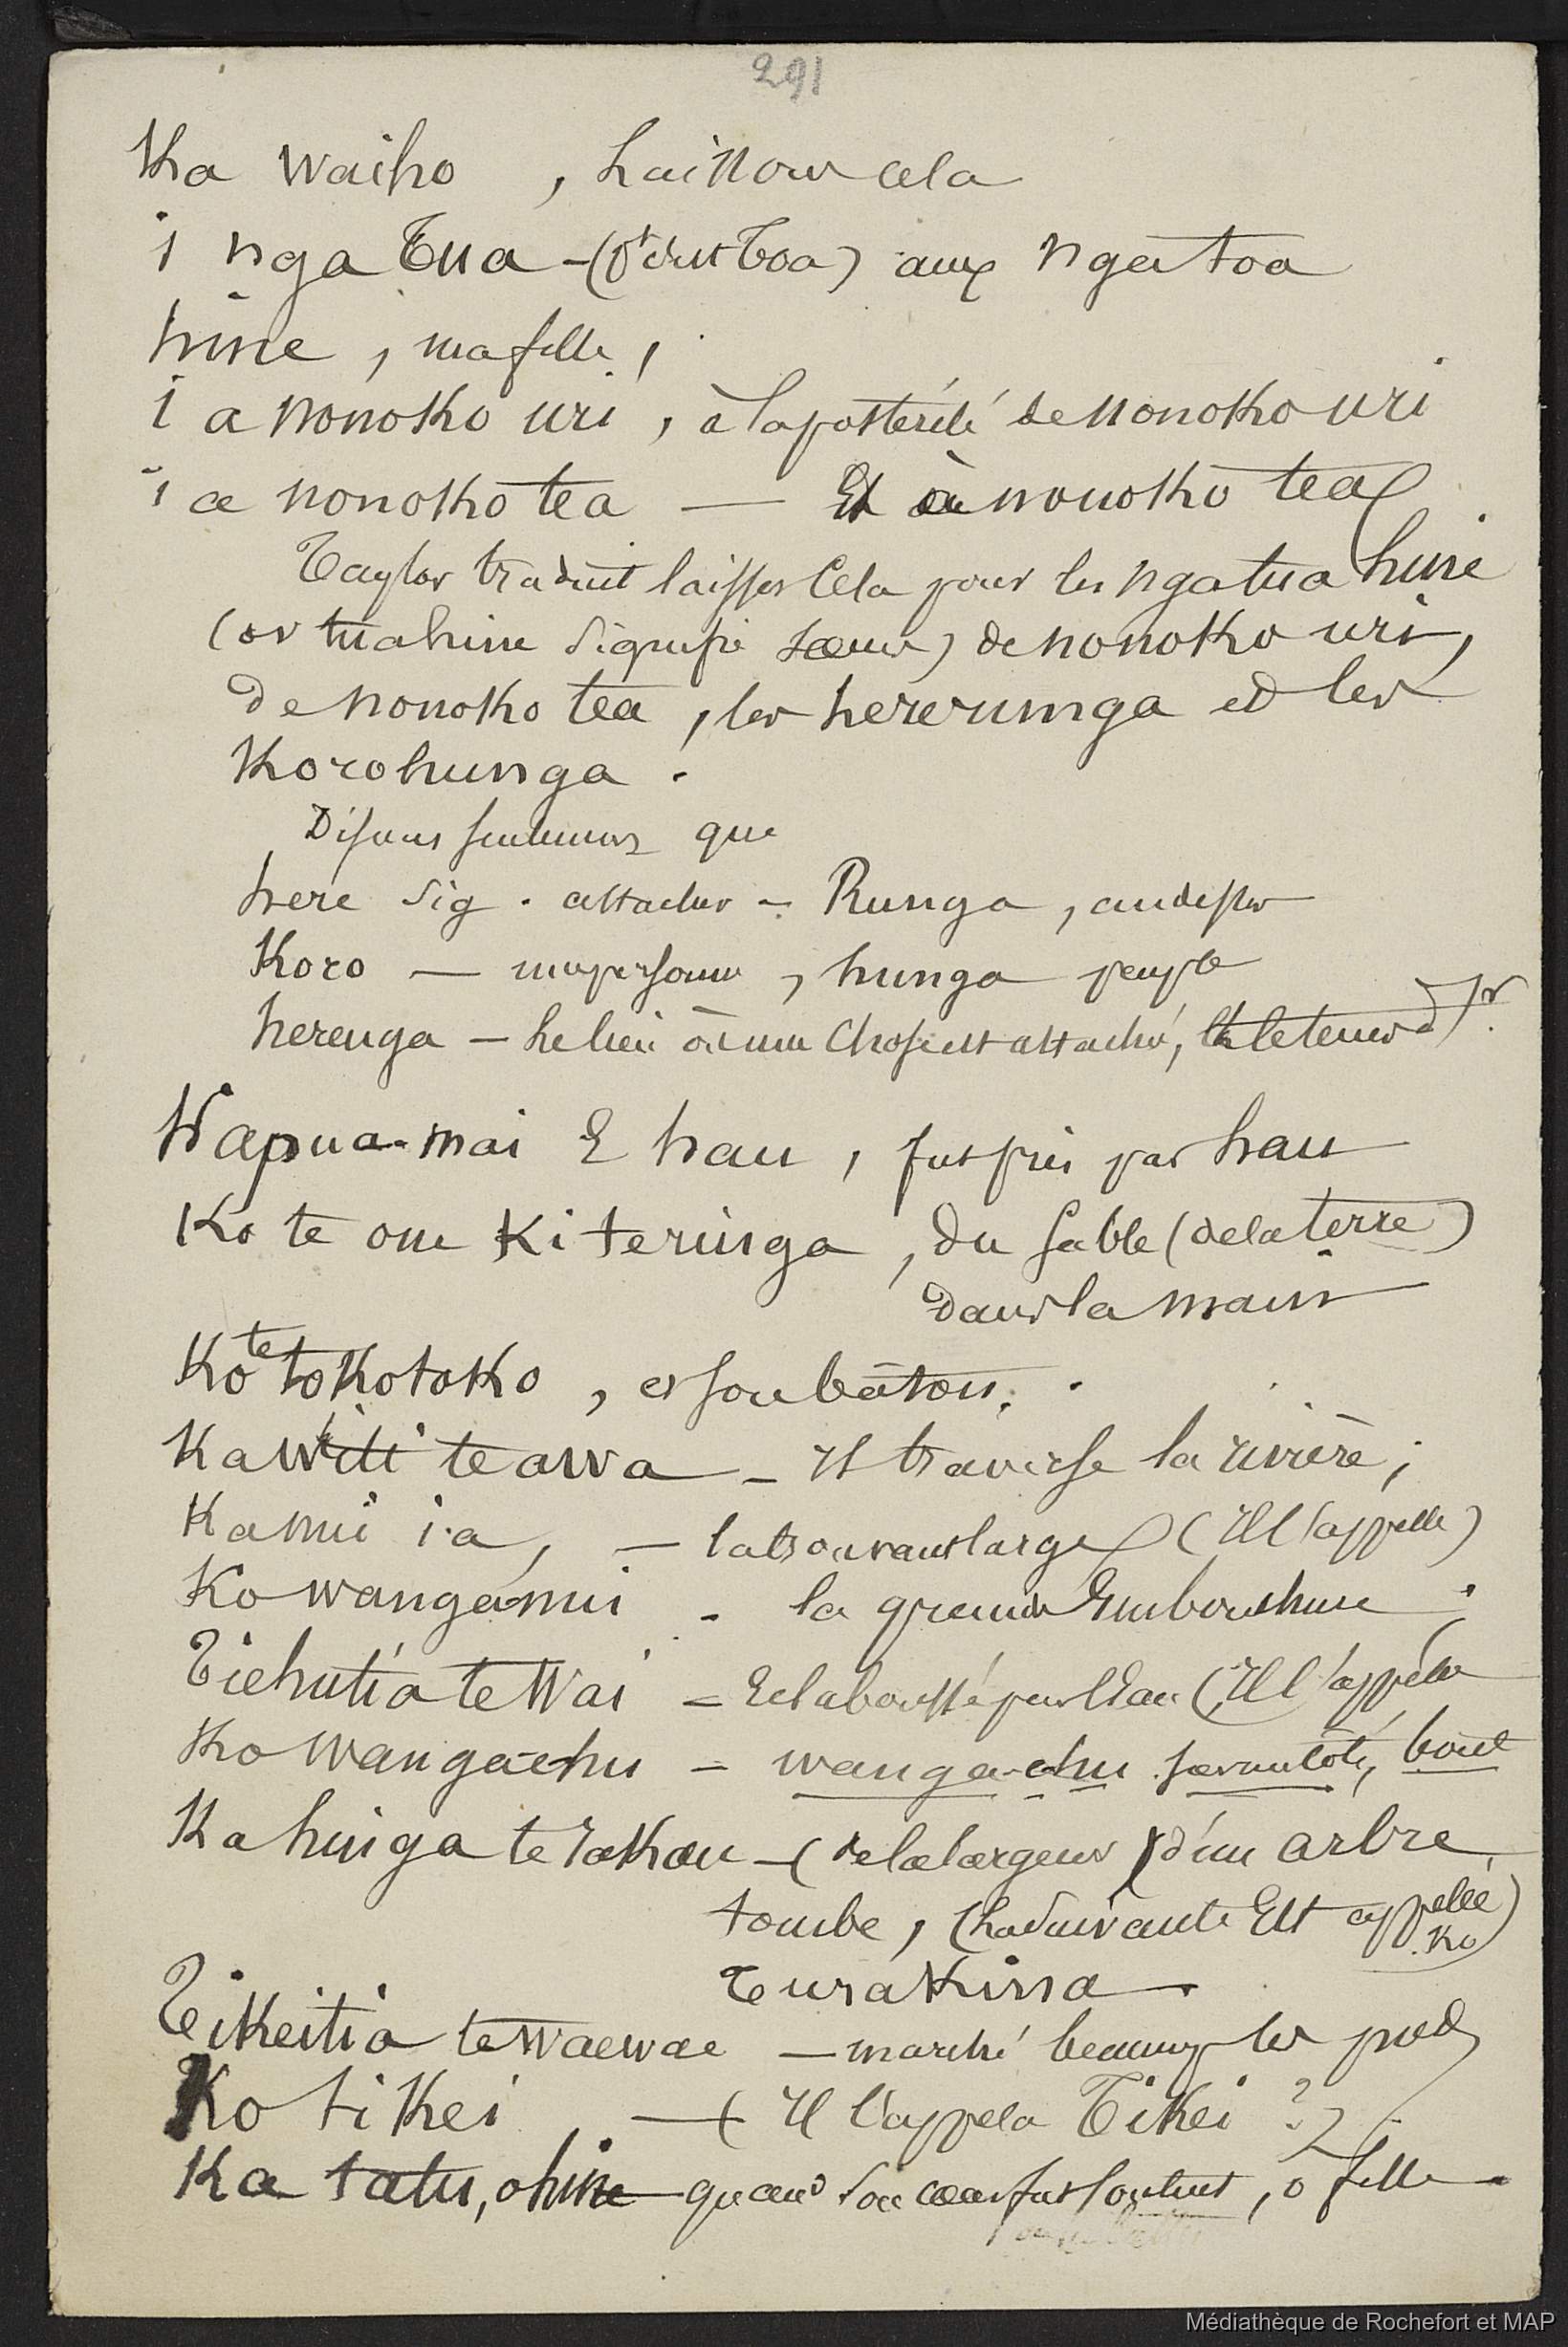 291
Ka waiho , Laissons cela
i nga Tua - (p.ê. Toa) aux nga toa
hine , ma fille ,
i a nonoko uri , à la postérité de nonoko uri
i a nonoko tea — Et à nonoko tea
Taylor traduit laisser Cela pour les nga tua hine
(or tuahine signifie sœur) de nonoko uri,
de nonoko tea , les hererunga et les
Korohunga .
Disons seulement que
here sig . attacher - Runga , au dessus
Koro — une personne , hunga peuple
herenga — Le lieu où une chose est attachée,
Wapua-mai E hau , fut pris par hau
Ko te one Ki te ringa , du sable (de la terre)
dans la main
Ko te tokotoko , et son bâton .
Ka witi te awa - Il traverse la rivière ;
Ka nui i.a, — la trouvant large (Il l'appelle)
Ko wanganui - la grande Embouchure ;
Tiehutia te Wai - Eclaboussé par l'Eau (Il l'appela
Ko wangaehu - wanga-ehu bout
Ka hinga te rakau - (de la largeur) d'un arbre
tombe , (La suivante Est appellée
Ko)
Turakina .
Tikeitia te waewae — marché beaucoup les pieds
Ko tikei — ( Il l'appela Tikei ? )
Ka tatu, o hine - quand son cœur fut , o fille -
Médiathèque de Rochefort et MAP